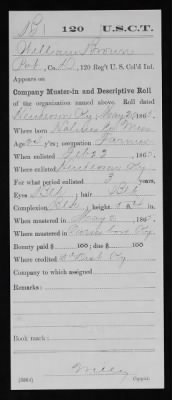 B | 120 | U.S.C.T.
William Brown
Pvt, Co. D, 120 Reg't U. S. Col'd Inf.
Appears on
Company Muster-in and Descriptive Roll
of the organization named above. Roll dated
Henderson Ky, May 2, 1865.
Where born
Age yrs; occupation Farmer
When enlisted Feb 22, 1865.
Where enlisted Henderson Ky
For what period enlisted 3 years,
Eyes Blk; hair Blk
Complexion Blk; height ft. in.
When mustered in May 2, 1865.
Where mustered in Ky
Bounty paid $ 100; due $ 100
Where credited Dist Ky
Company to which assigned
Remarks:
Book mark:
Copyist.